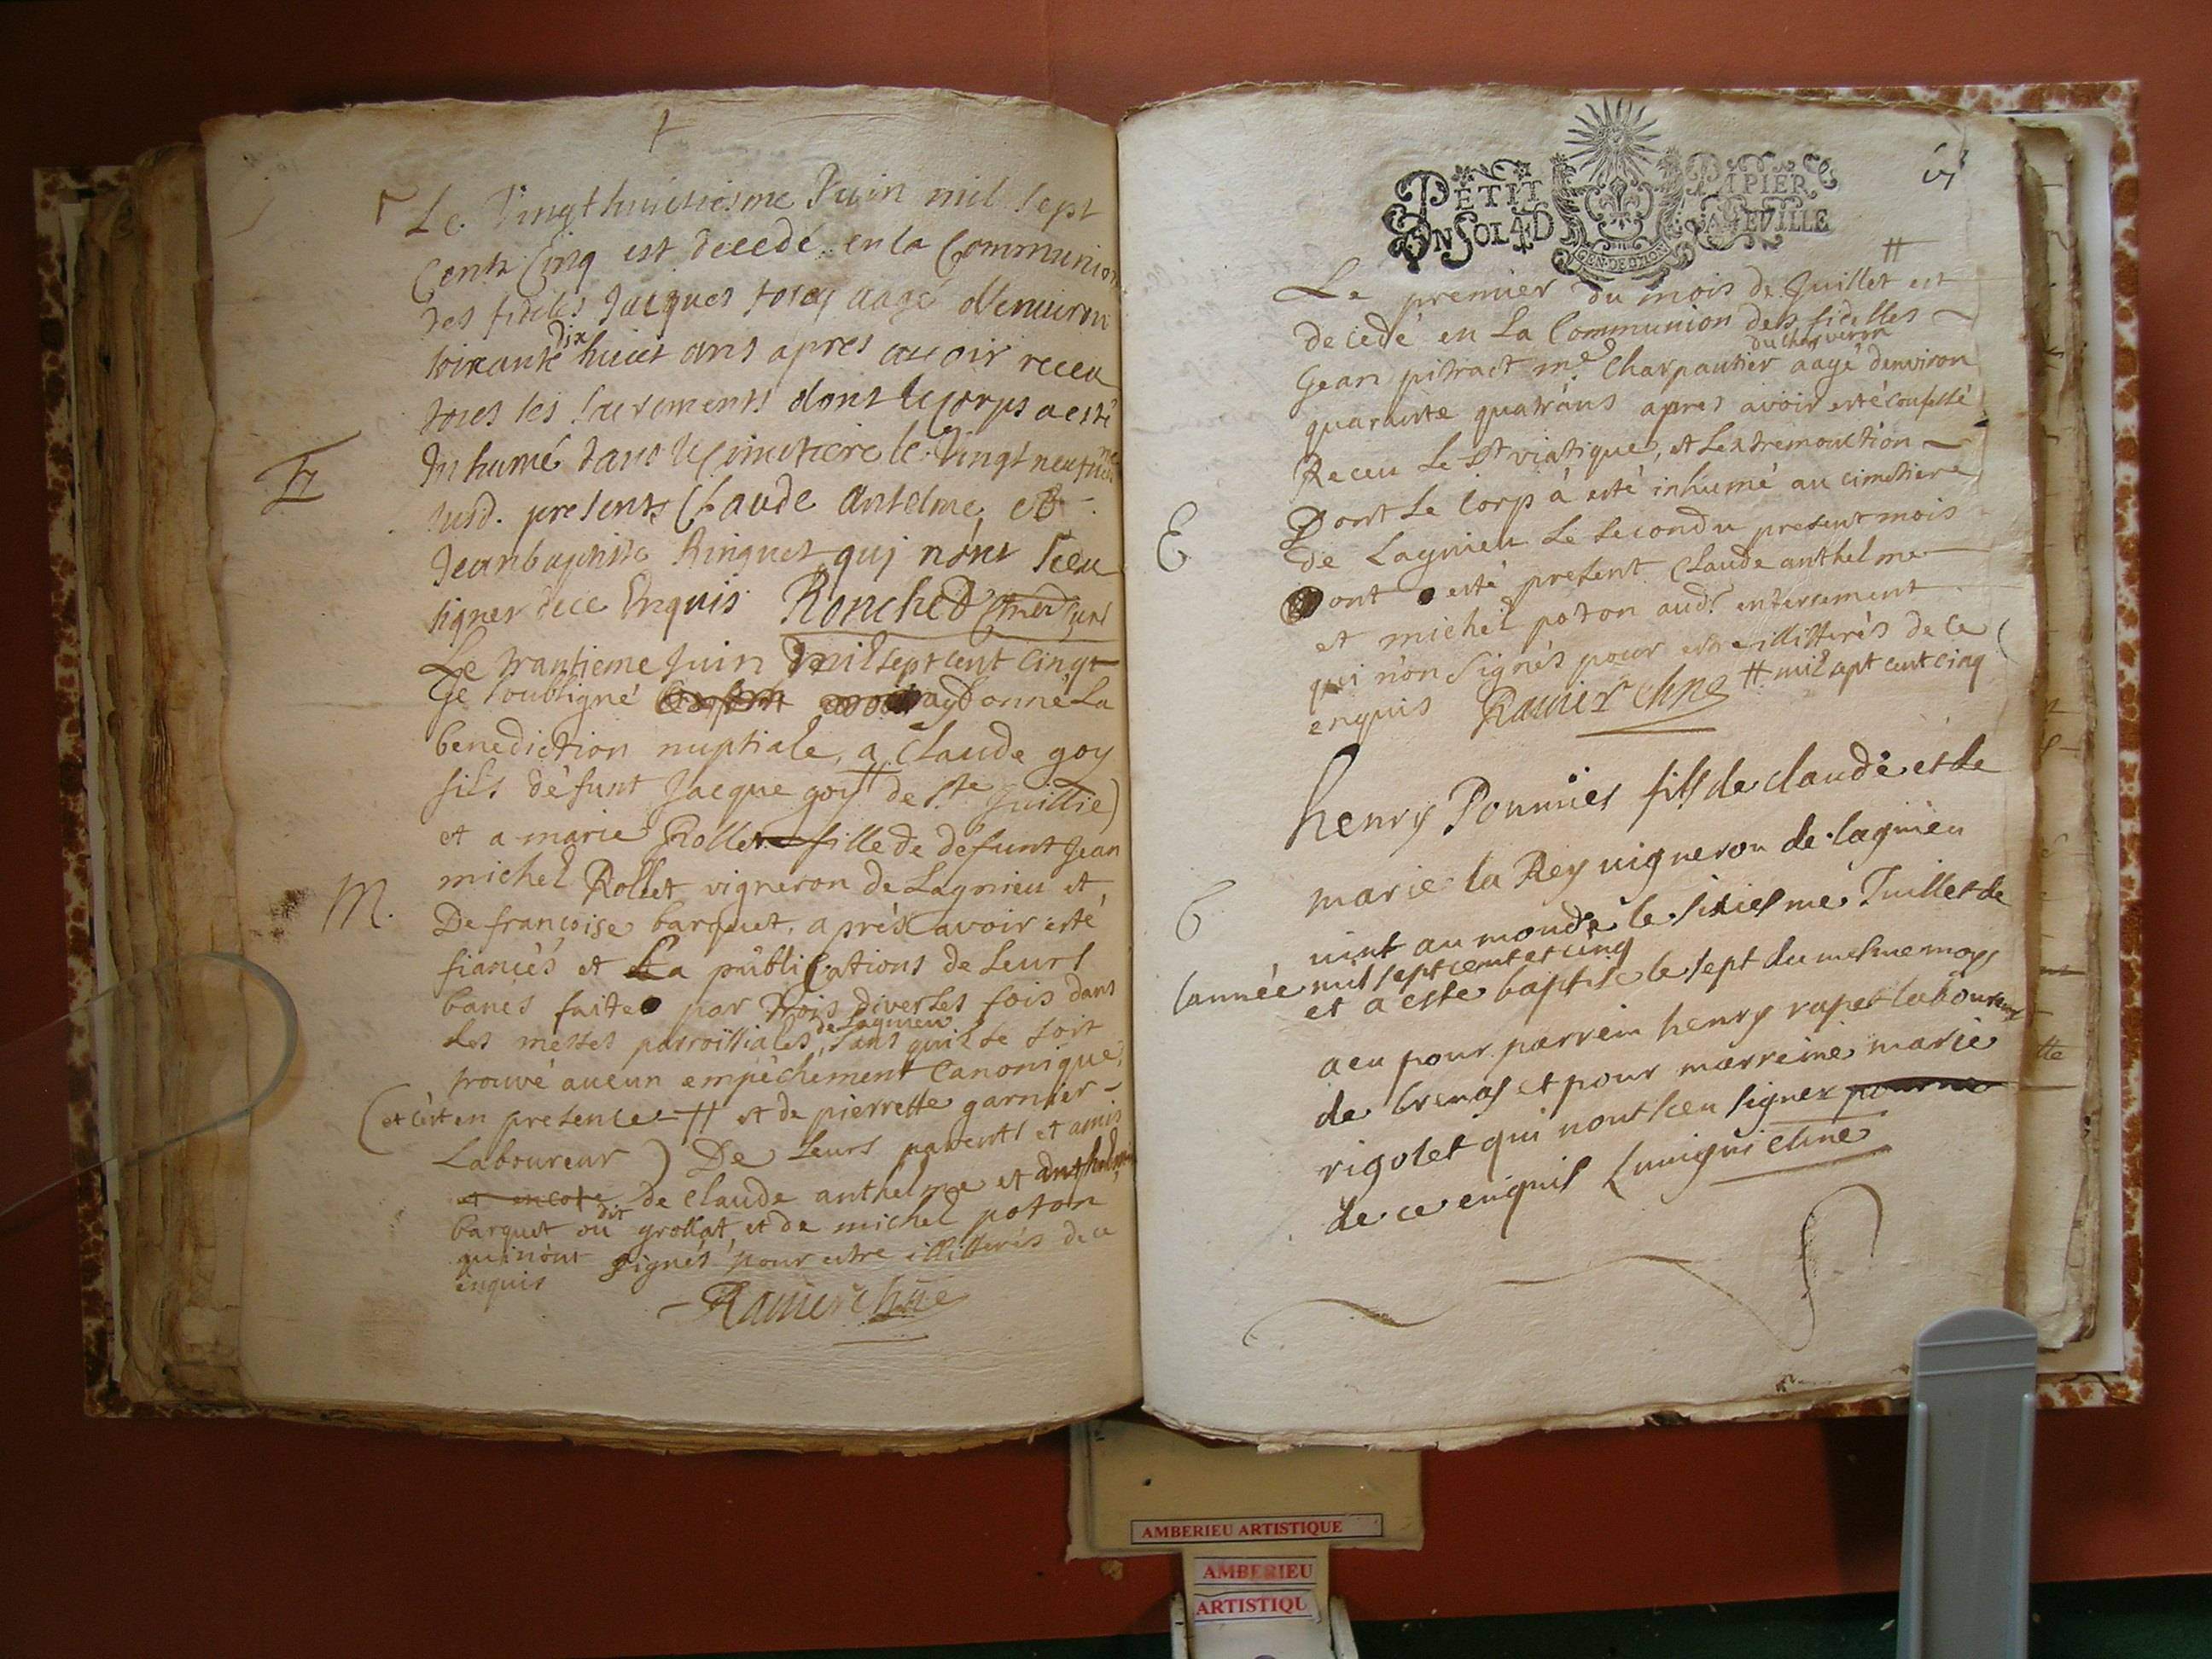 Le Vingthuictiesme Juin mil sept
Cents Cinq est decedé en la Communion
des fideles Jacques aagé d'enuiron
soixante dix huict ans apres auoir receu
tous les sacrements dont le corps a esté
Inhumé dans le cimetiere le Vingt neufme
susd. presents Claude Antelme et
Jeanbaptiste Ringuet quj n'ont sceu
signer de ce Enquis Ronchet curé
H
Le trantieme Juin mil sept cent cinq
Je soubsigné ay Donné La
benediction nuptiale, a Claude goy
fils défunt Jacque goy # de Ste Juillie)
et a marie Rollet fille de défunt Jean
michel Rollet vigneron de Lagnieu et
M.
De françoise barquet, aprés avoir esté
fiancés et La publications de Leurs
bancs faite par trois diverses fois dans
Les messes parroissiales, de Lagnieu sans quil se soit
trouvé aucun empéchement Canonique,
(et c'est en presence # et de pierrette garnier
Laboureur) De Leurs parents et amis
et encore de Claude anthelme et anthelme
barquet ou dit grollat, et de michel poton
qui n'ont signés pour estre illitterés de ce
enquis
Ravier
PETIT PAPIER
UN SOL 4 D LA FEUILLE
GEN. DE DIION
Le premier du mois de Juillet # est
decedé en La Communion des fidelles
Jean pitract me Charpantier aagé denviron
quarante quatr'ans apres avoir esté confessé
Receu Le St viatique, et Lextremonction
Dont Le Corp á esté inhumé au cimetiere
E
de Lagnieu Le second du present mois
ont esté present Claude anthelme
et michel poton aud. enterrement
qui n'on signés pour estre illitterés de ce
enquis Ravier # mil sept cent cinq
henry Pounnies fils de claude et de
marie la Rey uigneron de lagnieu
6
uint au monde le sixiesme Juillet de
lannée mil sept cent et cinq
et a este baptise le sept du mesme moys
a eu pour parrein henry rapet laboureur
de brenas et pour marreine marie
rigolet qui nont sceu signer
de ce enquis
AMBERIEU ARTISTIQUE
AMBERIEU
ARTISTIQU